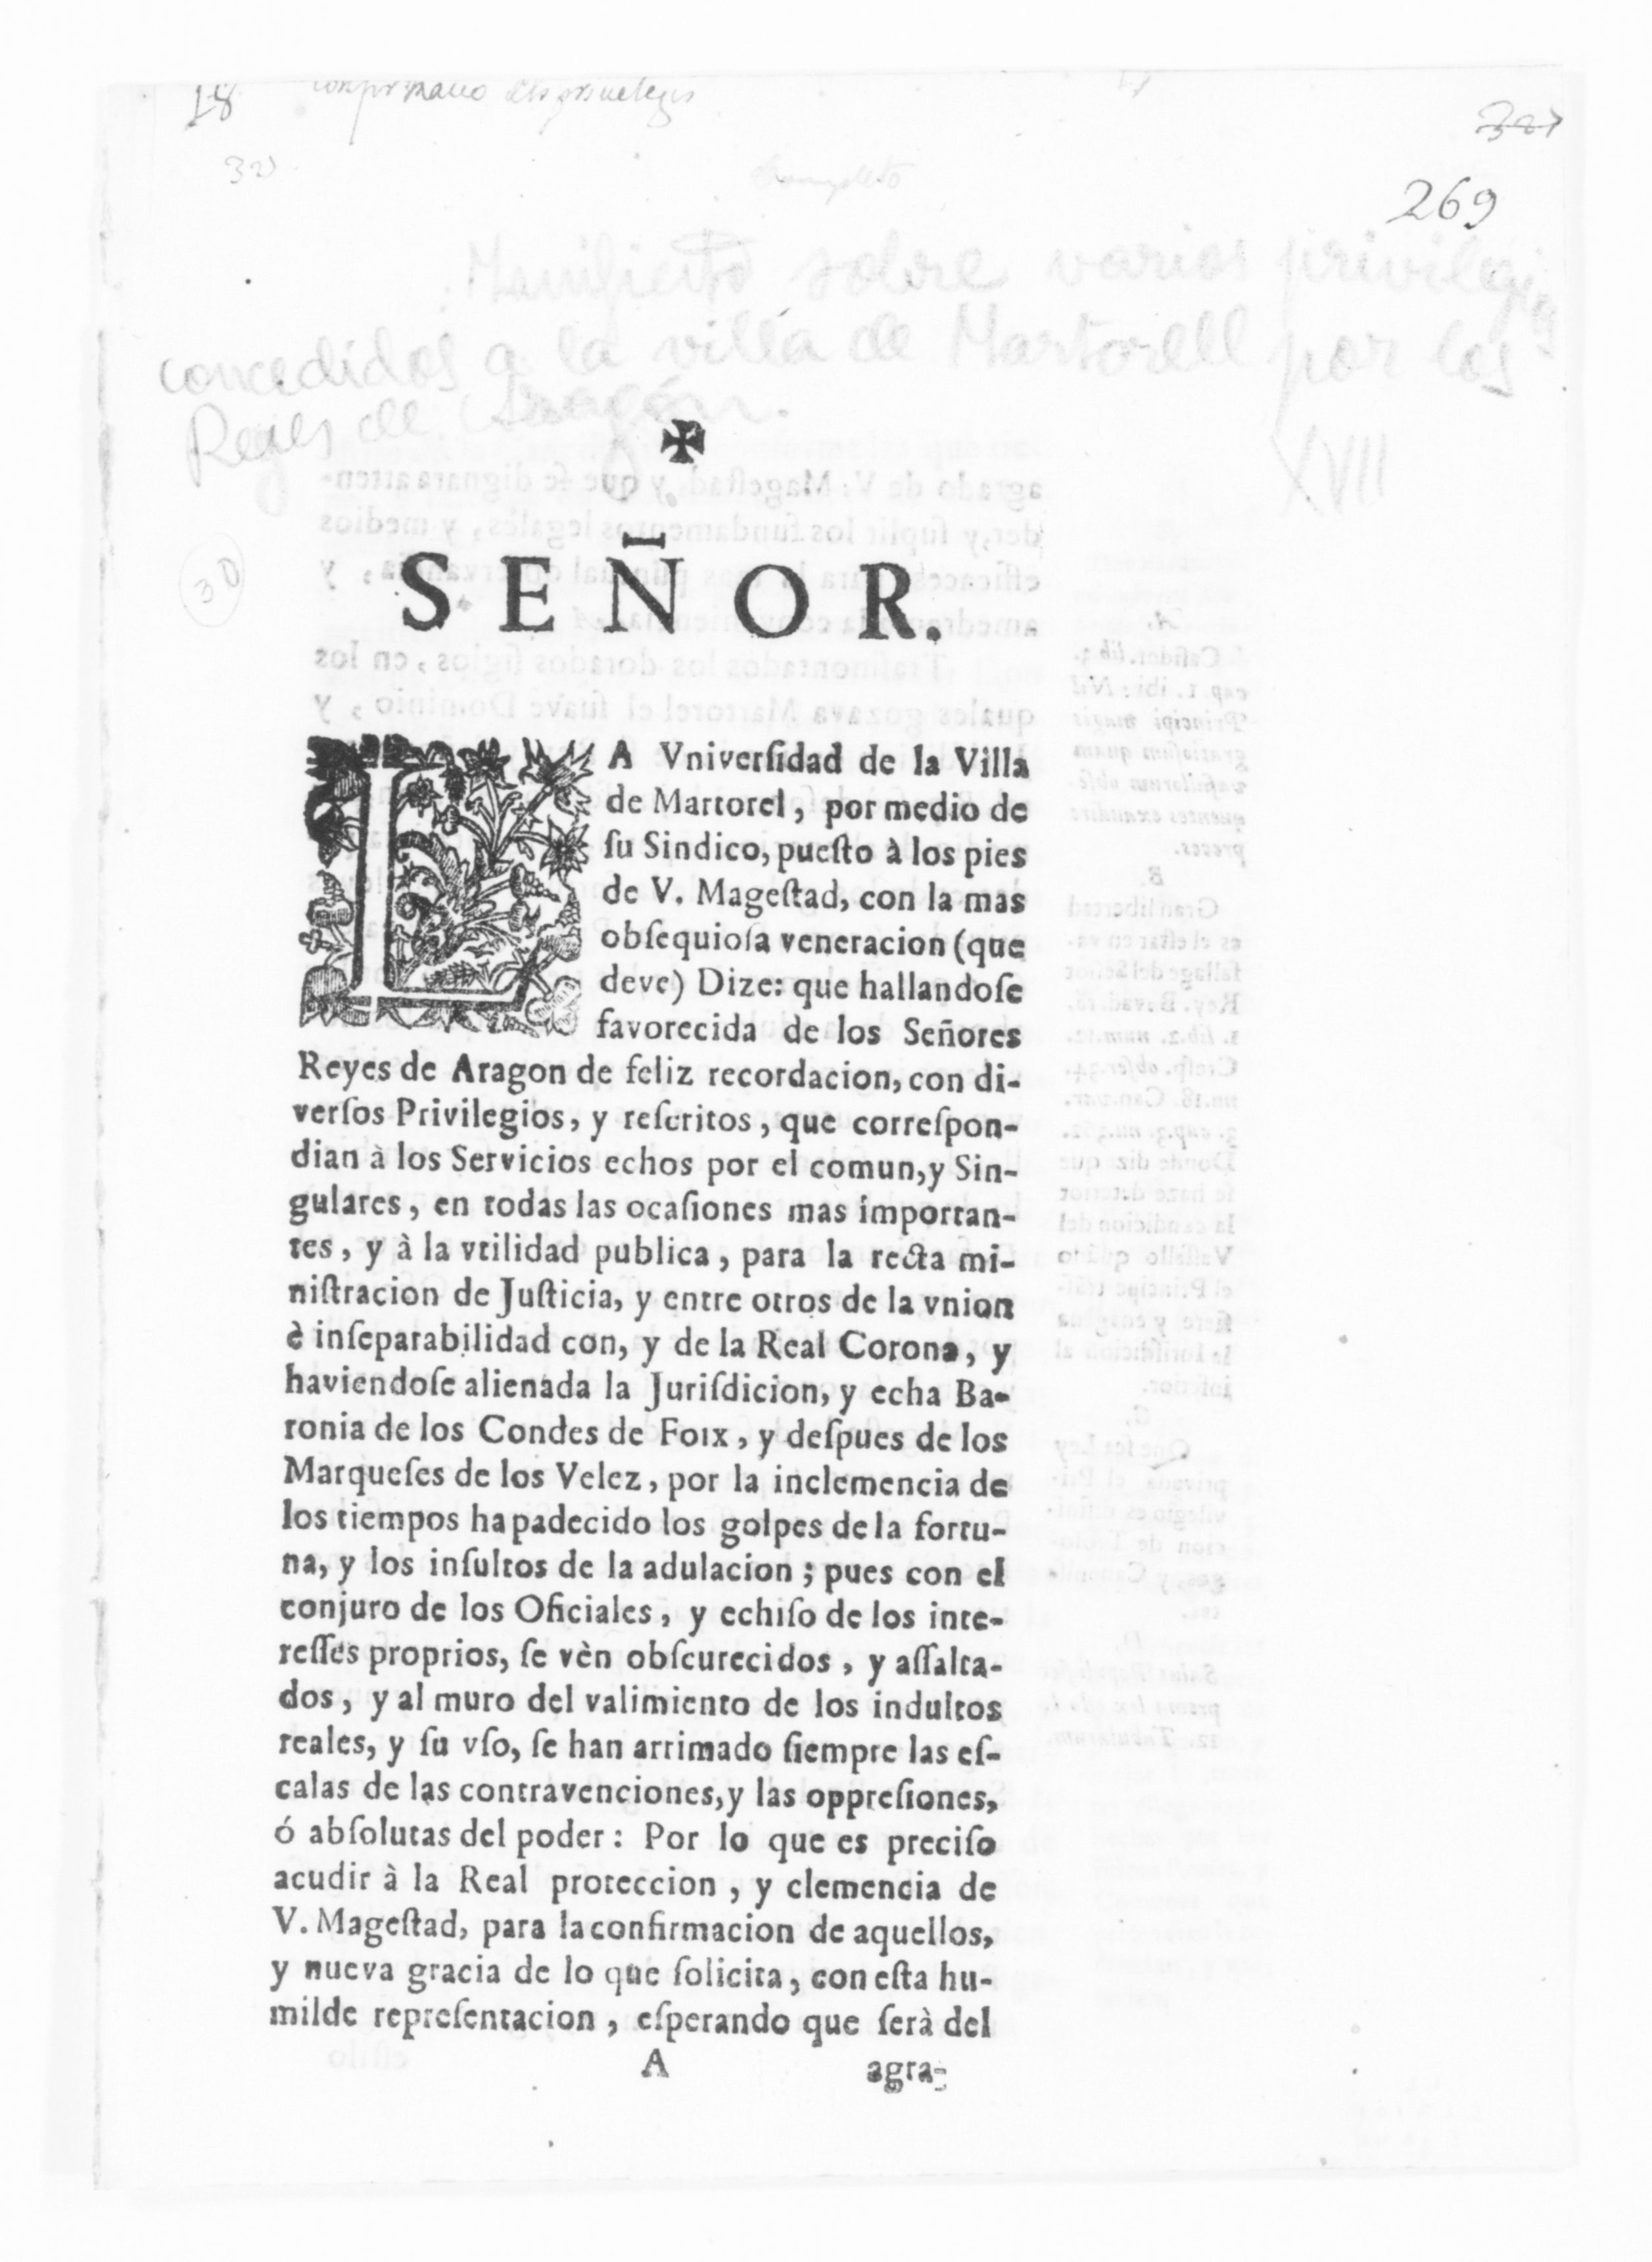 18
327
269
Manifiesto sobre varios privilegios
concedidos a la villa de Martorell por los
Reyes de Aragón.
XVII
30
✠
SEÑOR.
LA Vniverſidad de la Villa
de Martorel, por medio de
ſu Sindico, pueſto à los pies
de V. Mageſtad, con la mas
obſequioſa veneracion (que
deve) Dize: que hallandoſe
favorecida de los Señores
Reyes de Aragon de feliz recordacion, con di-
verſos Privilegios, y reſcritos, que correſpon-
dian à los Servicios echos por el comun, y Sin-
gulares, en todas las ocaſiones mas importan-
tes, y à la vtilidad publica, para la recta mi-
niſtracion de Juſticia, y entre otros de la vnion
è inſeparabilidad con, y de la Real Corona, y
haviendoſe alienada la Juriſdicion, y echa Ba-
ronia de los Condes de Foix, y deſpues de los
Marqueſes de los Velez, por la inclemencia de
los tiempos ha padecido los golpes de la fortu-
na, y los inſultos de la adulacion; pues con el
conjuro de los Oficiales, y echiſo de los inte-
reſſes proprios, ſe vèn obſcurecidos, y aſſalta-
dos, y al muro del valimiento de los indultos
reales, y ſu vſo, ſe han arrimado ſiempre las eſ-
calas de las contravenciones, y las oppreſiones,
ó abſolutas del poder: Por lo que es preciſo
acudir à la Real proteccion, y clemencia de
V. Mageſtad, para la confirmacion de aquellos,
y nueva gracia de lo que ſolicita, con eſta hu-
milde repreſentacion, eſperando que ſerà del
A agra-